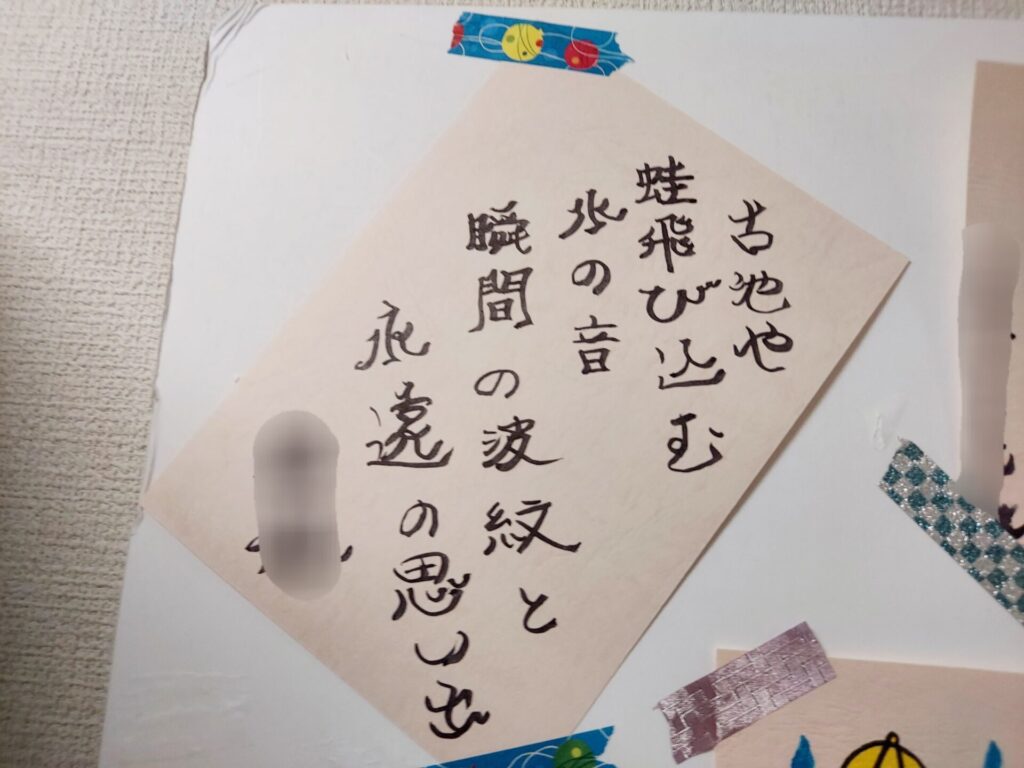 古池や
蛙飛び込む
水の音
瞬間の波紋と
永遠の思い出